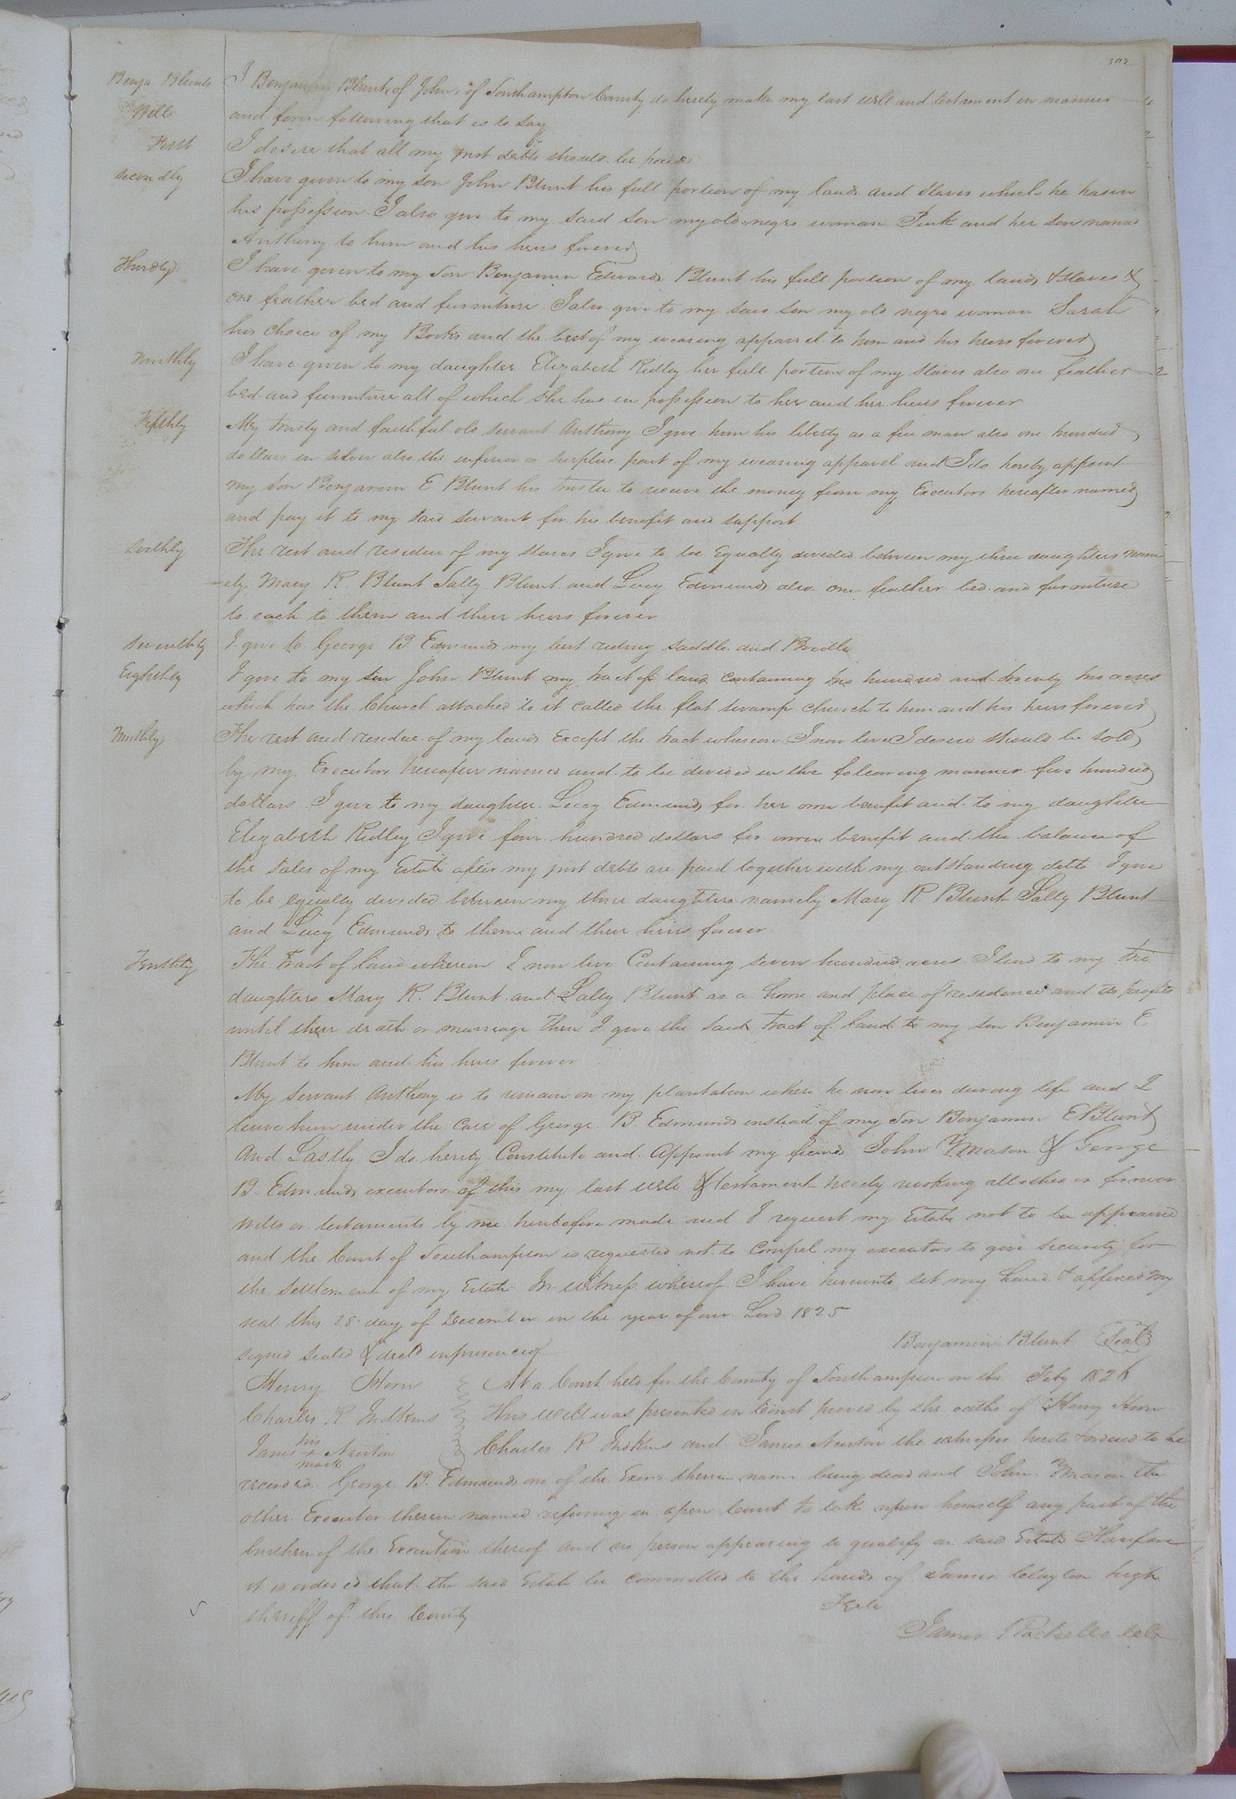 302
Benja Blunts I Benjamin Blunt of John of Southampton County do hereby make my last will and testament in manner
Will and form following that is to say
First I desire that all my just debts should be paid
secondly I have given to my son John Blunt his full portion of my lands and slaves which he has in
his possession I also give to my said son my old negro woman and her son named
Anthony to him and his heirs forever
Thirdly I have given to my Son Benjamin Edward Blunt his full portion of my lands & slaves &
one feather bed and furniture I also give to my said son my old negro woman Sarah
his choice of my Books and the best of my wearing apparel to him and his heirs forever
I have given to my daughter Elizabeth Ridley her full portion of my slaves also one feather
bed and furniture all of which she has in possession to her and her heirs forever
Fifthly My trusty and faithful old servant Anthony I give him his liberty as a free man also one hundred
dollars in silver also the inferior or surplus part of my wearing apparel and I do hereby appoint
my son Benjamin E Blunt his trustee to receive the money from my Executors hereafter named
and pay it to my said servant for his benefit and support
Sixthly The rest and residue of my slaves I give to be Equally divided between my three daughters name
ely Mary R Blunt Sally Blunt and Lucy Edmunds also one feather bed and furniture
to each to them and their heirs forever
Seventhly I give to George B Edmunds my best riding saddle and Bridle
Eighthly I give to my son John Blunt my tract of land containing two hundred and twenty two acres
which has the Church attached to it called the flat swamp church to him and his heirs forever
Ninthly The rest and residue of my lands Except the tract whereon I now live I desire should be sold
by my Executors hereafter named and to be divided in the following manner five hundred
dollars I give to my daughter Lucy Edmunds for her own benefit and to my daughter
Elizabeth Ridley I give four hundred dollars for benefit and the balance of
the sales of my Estate after my just debts are paid together with my outstanding debts I give
to be equally divided between my three daughters namely Mary R Blunt Sally Blunt
and Lucy Edmunds to them and their heirs forever
Tenthly The Tract of land whereon I now live Containing seven hundred acres I lend to my two
daughters Mary R. Blunt and Sally Blunt as a home and place of residence and its profits
until their death or marriage then I give the said Tract of Land to my son Benjamin E
Blunt to him and his heirs forever
My servant Anthony is to remain on my plantation where he now lives during life and I
leave him under the Care of George B. Edmunds instead of my Son Benjamin E Blunt
And Lastly I do hereby Constitute and Appoint my friends John Y Mason & George
B Edmunds executors of this my last will & testament hereby revoking all other or former
wills or testaments by me heretofore made and I request my Estate not to be appraised
and the Court of Southampton is requested not to compel my executors to give security for
the settlement of my Estate In witness whereof I have hereunto set my hand & affixed my
seal this 28 day of December in the year of our Lord 1825
Benjamin Blunt (Seal)
signed sealed & deld in presence of
Henry Horn At a Court held for the County of Southampton on the Feby 1826
Charles R Judkins This will was presented in Court proved by the oaths of Henry Horn
James his mark Newton Charles R Judkins and James Newton the witnesses hereto & ordered to be
recorded George B. Edmunds one of the Exors therein name being dead and John Y Mason the
other Executor therein named refusing in open Court to take upon himself any part of the
burthen of the Execution thereof and no person appearing to qualify on said Estate Therefore
it is ordered that the said Estate be committed to the hands of James Clayton high
sheriff of this County
Teste
James Rochelle Clk